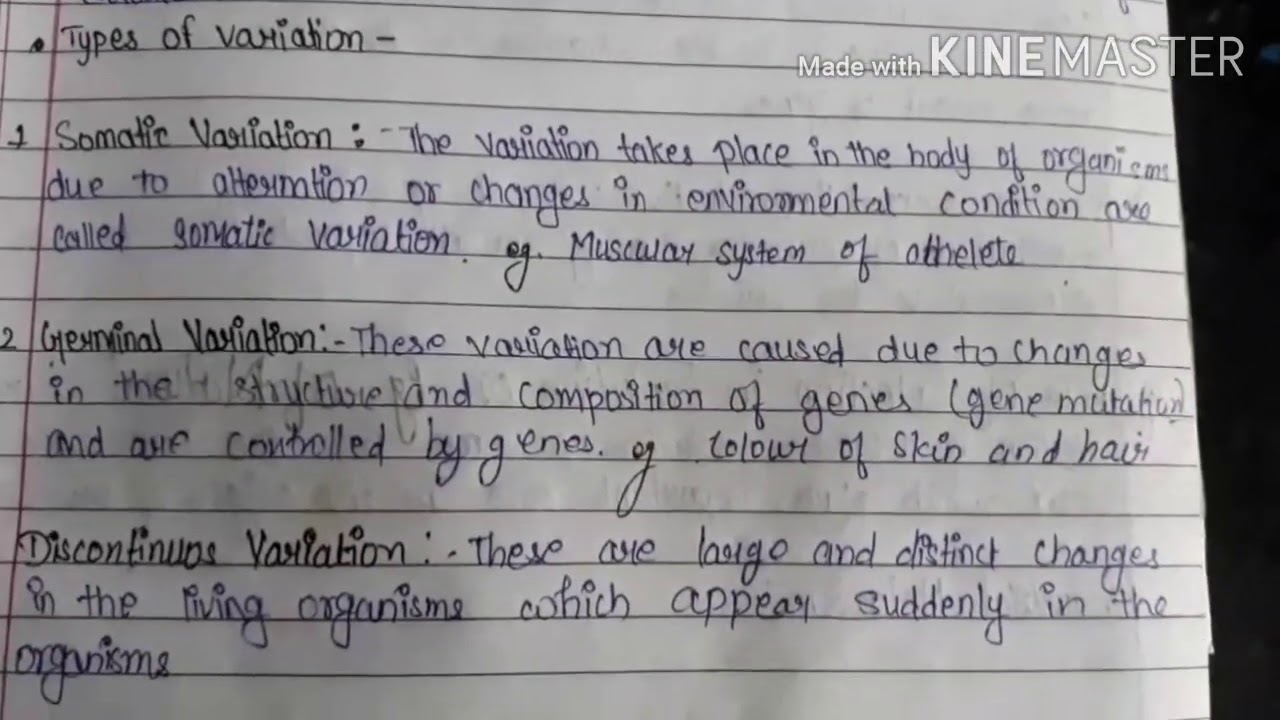 • Types of variation -
Made with KINEMASTER
1 Somatic Variation : - The variation takes place in the body of organisms
due to alteration or changes in environmental condition are
called somatic variation. eg. Muscular system of athelete
2 Germinal Variation :- These variation are caused due to changes
in the structure and composition of genes (gene mutation)
and are controlled by genes. eg colour of skin and hair
Discontinuos Variation : - These are large and distinct changes
in the living organisms which appear suddenly in the
organisms